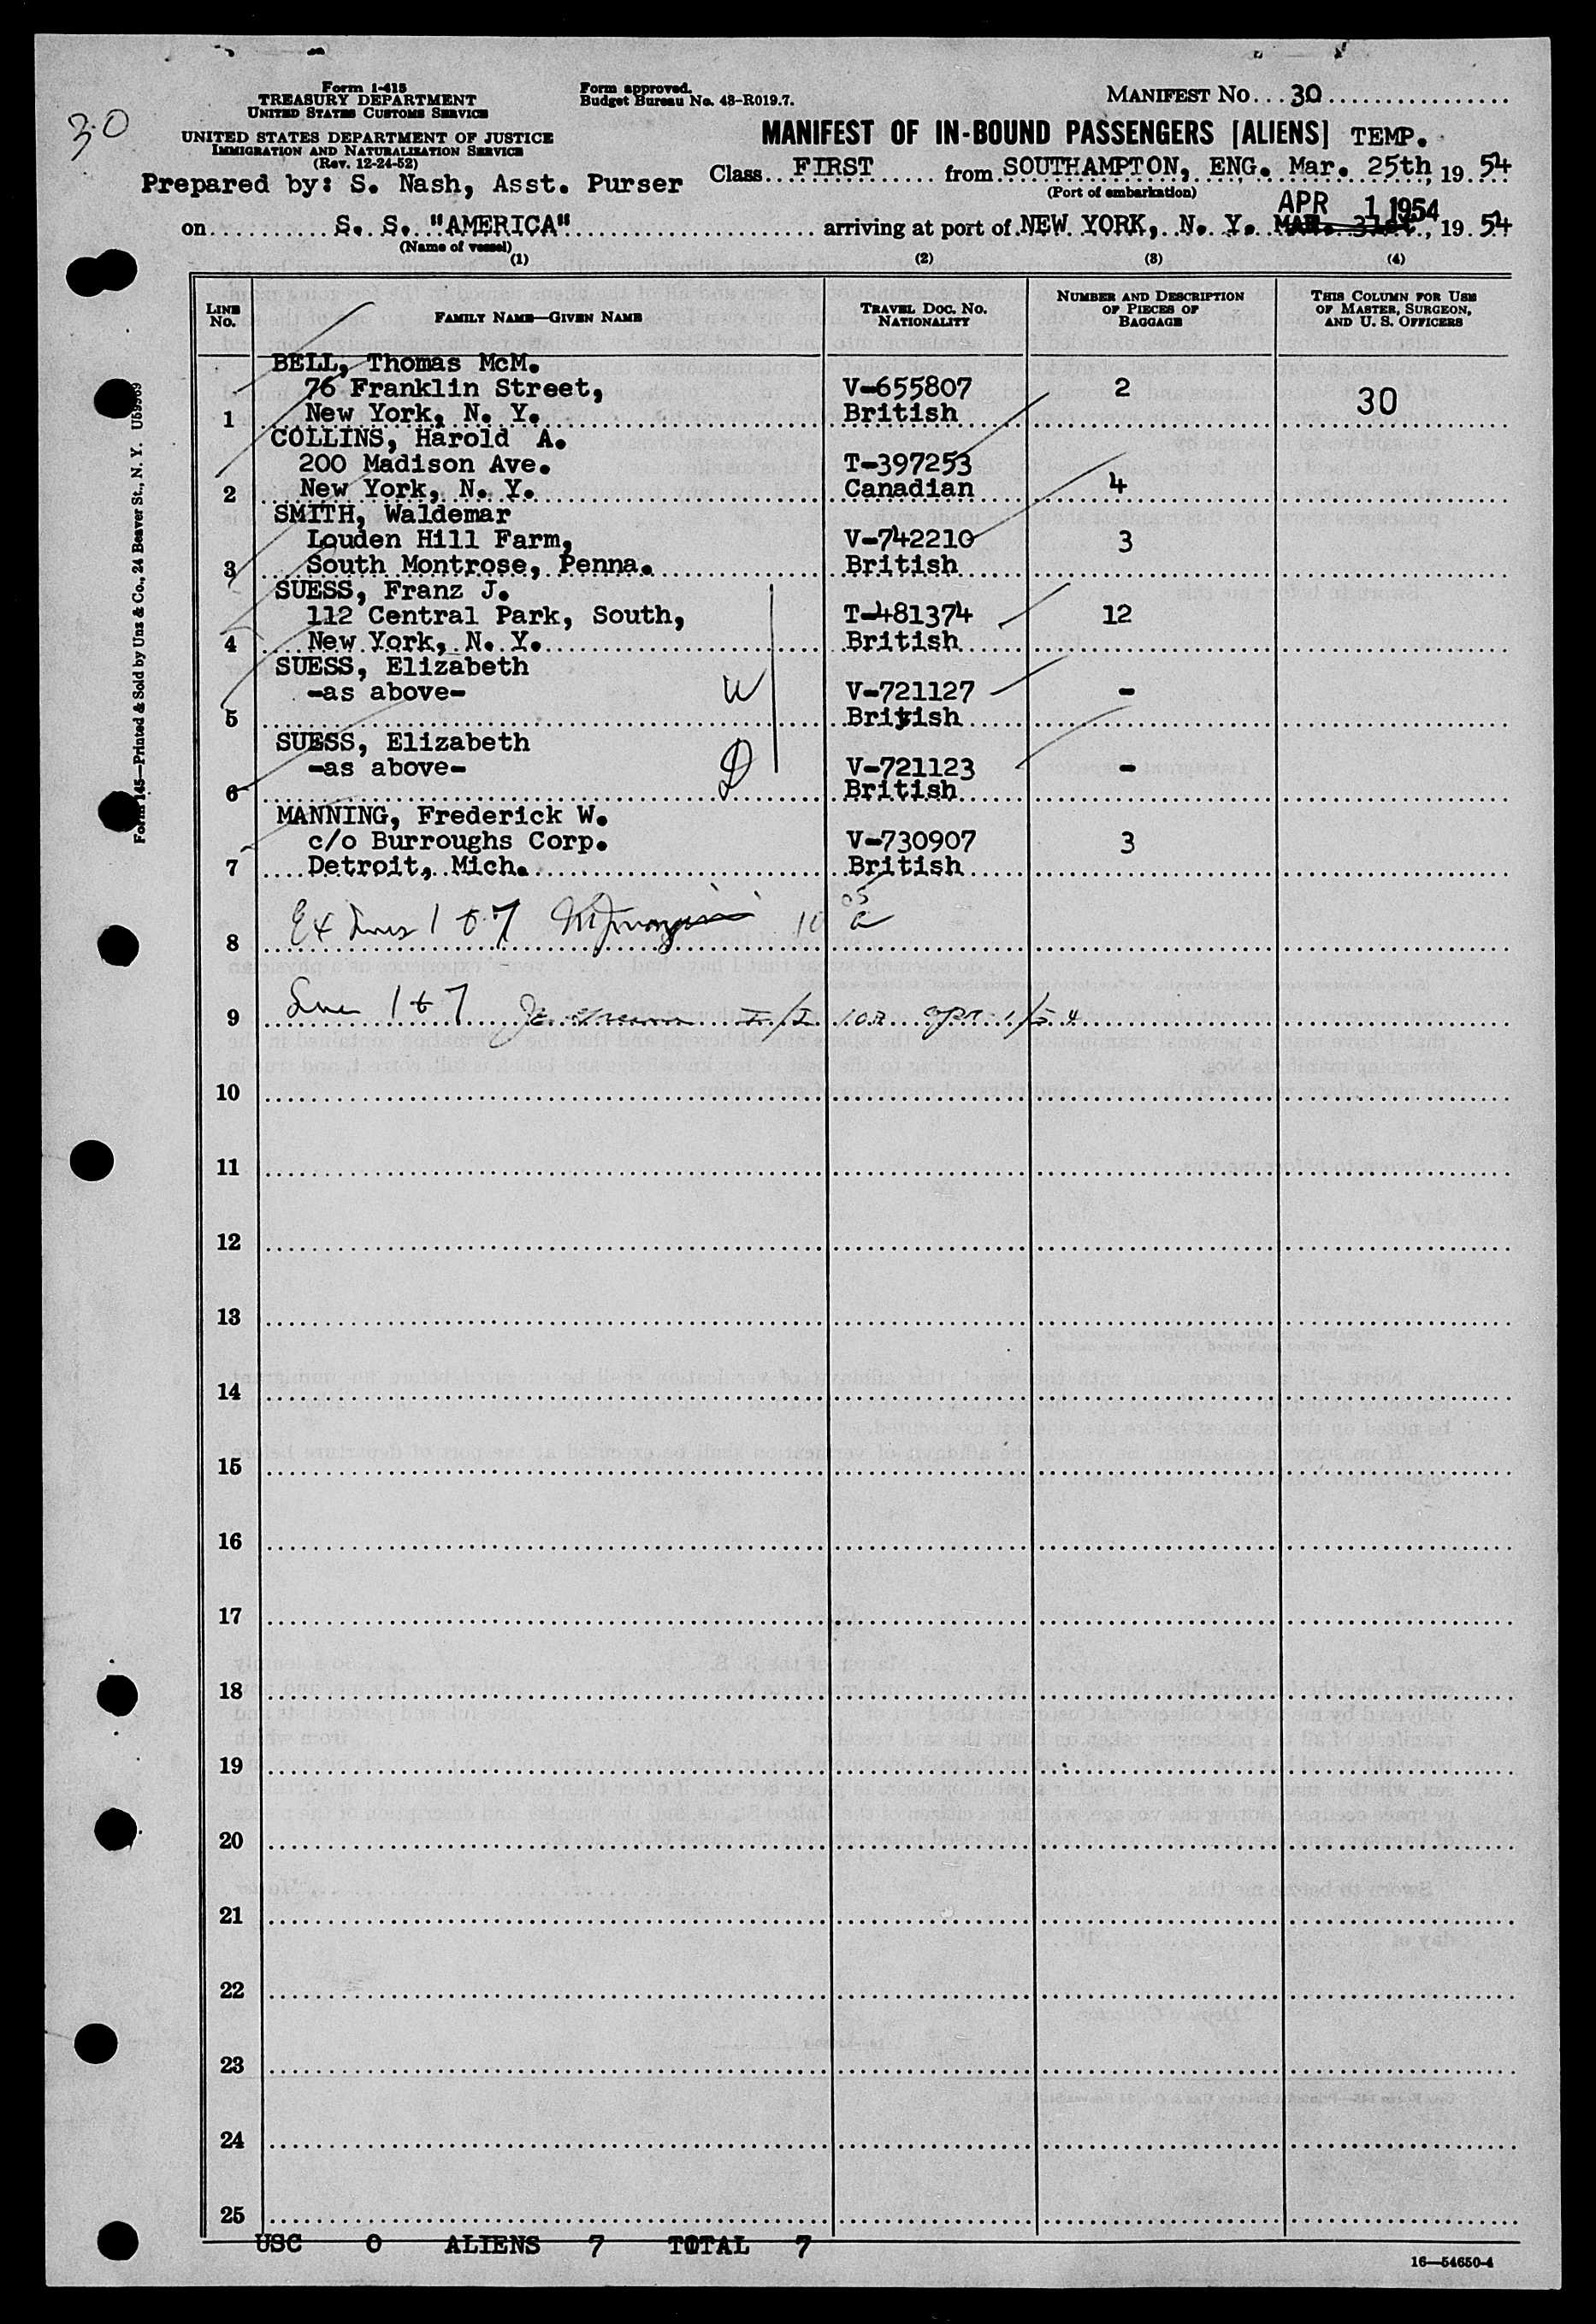 30
Form I-415
TREASURY DEPARTMENT
UNITED STATES CUSTOMS SERVICE
UNITED STATES DEPARTMENT OF JUSTICE
IMMIGRATION AND NATURALIZATION SERVICE
(Rev. 12-24-52)
Prepared by: S. Nash, Asst. Purser
Form approved.
Budget Bureau No. 43-R019.7.
MANIFEST NO. 30
MANIFEST OF IN-BOUND PASSENGERS [ALIENS] TEMP.
Class FIRST from SOUTHAMPTON, ENG. Mar. 25th, 19 54
(Port of embarkation)
APR 1 1954
on S. S. "AMERICA" arriving at port of NEW YORK, N. Y. MAR. 31st, 19 54
(Name of vessel)
(1) (2) (3) (4)
LINE No. FAMILY NAME—GIVEN NAME TRAVEL DOC. NO. NATIONALITY NUMBER AND DESCRIPTION OF PIECES OF BAGGAGE THIS COLUMN FOR USE OF MASTER, SURGEON, AND U. S. OFFICERS
BELL, Thomas McM.
76 Franklin Street, V-655807 2 30
1 New York, N. Y. British
COLLINS, Harold A.
200 Madison Ave. T-397253
2 New York, N. Y. Canadian 4
SMITH, Waldemar
Louden Hill Farm, V-742210 3
3 South Montrose, Penna. British
SUESS, Franz J.
112 Central Park, South, T-481374 12
4 New York, N. Y. British
SUESS, Elizabeth
-as above- W V-721127 -
5 British
SUESS, Elizabeth
-as above- D V-721123 -
6 British
MANNING, Frederick W.
c/o Burroughs Corp. V-730907 3
7 Detroit, Mich. British
8 Ex lines 1 to 7
9 Line 1 to 7 Apr 1/54
10
11
12
13
14
15
16
17
18
19
20
21
22
23
24
25
USC 0 ALIENS 7 TOTAL 7
16—54650-4
Form 145—Printed & Sold by Unz & Co., 24 Beaver St., N. Y. U59969